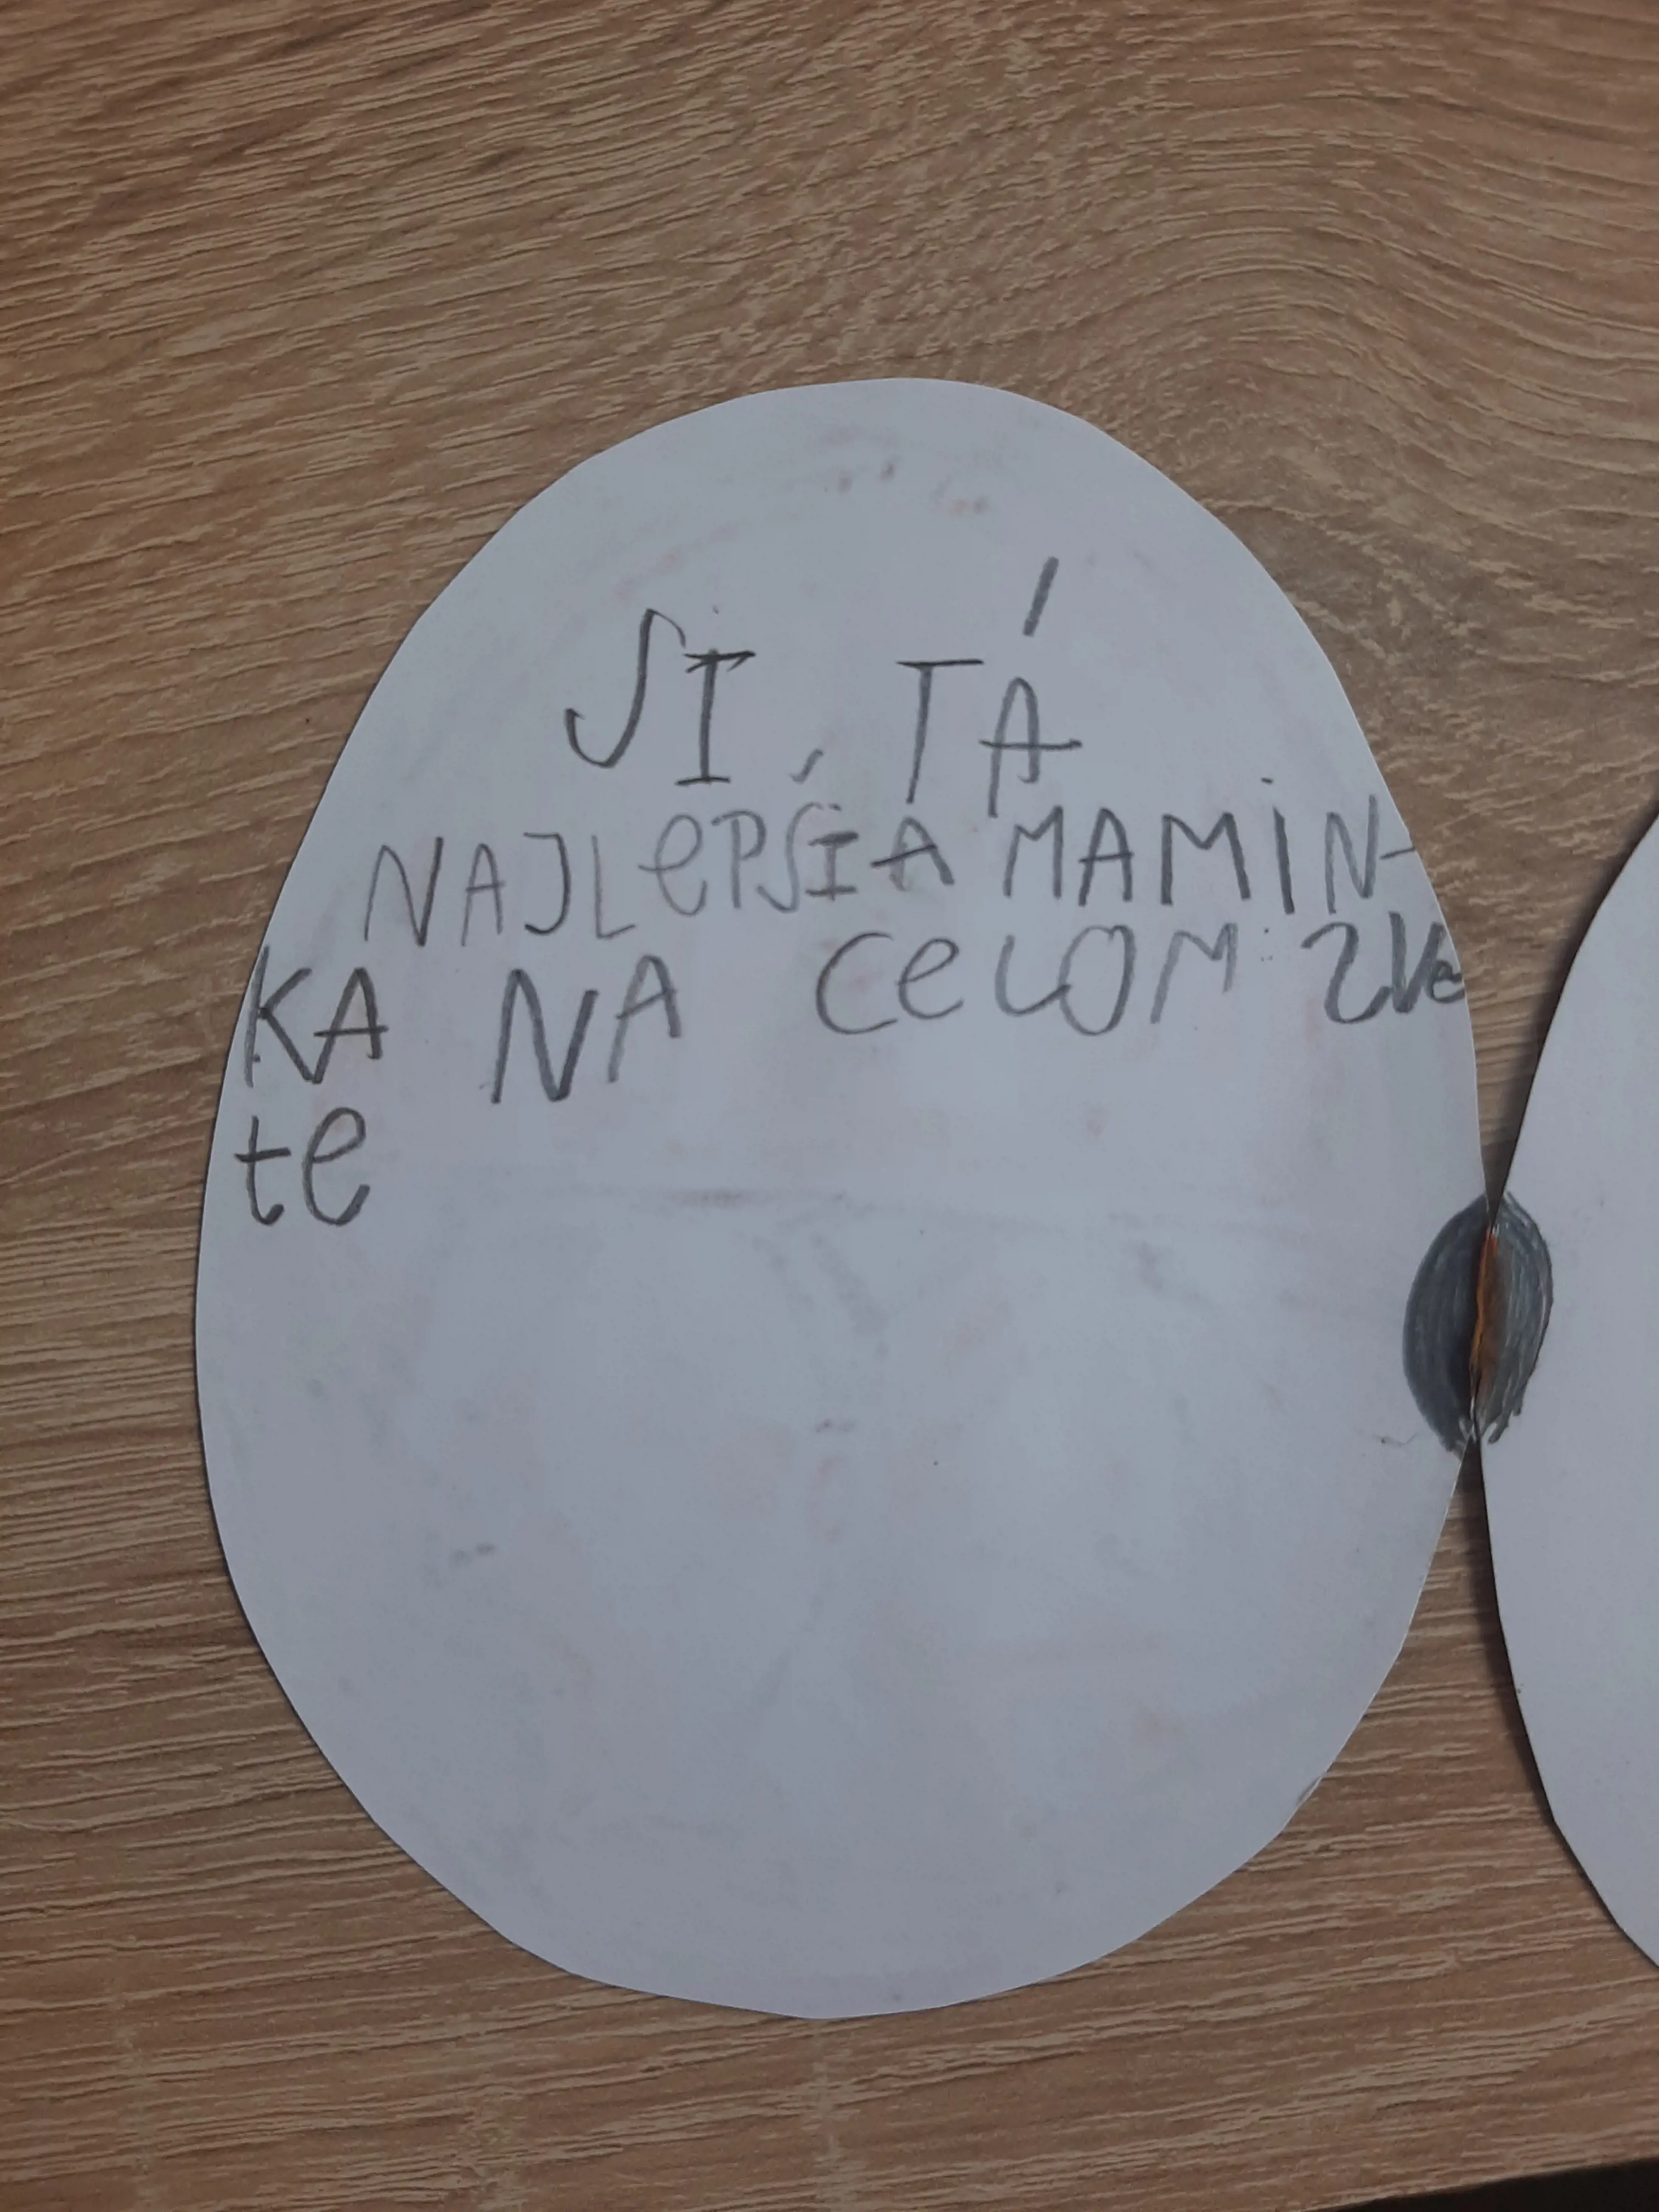 SI, TÁ
NAJLePŠIA MAMIN-
KA NA CeLOM ZVe
te